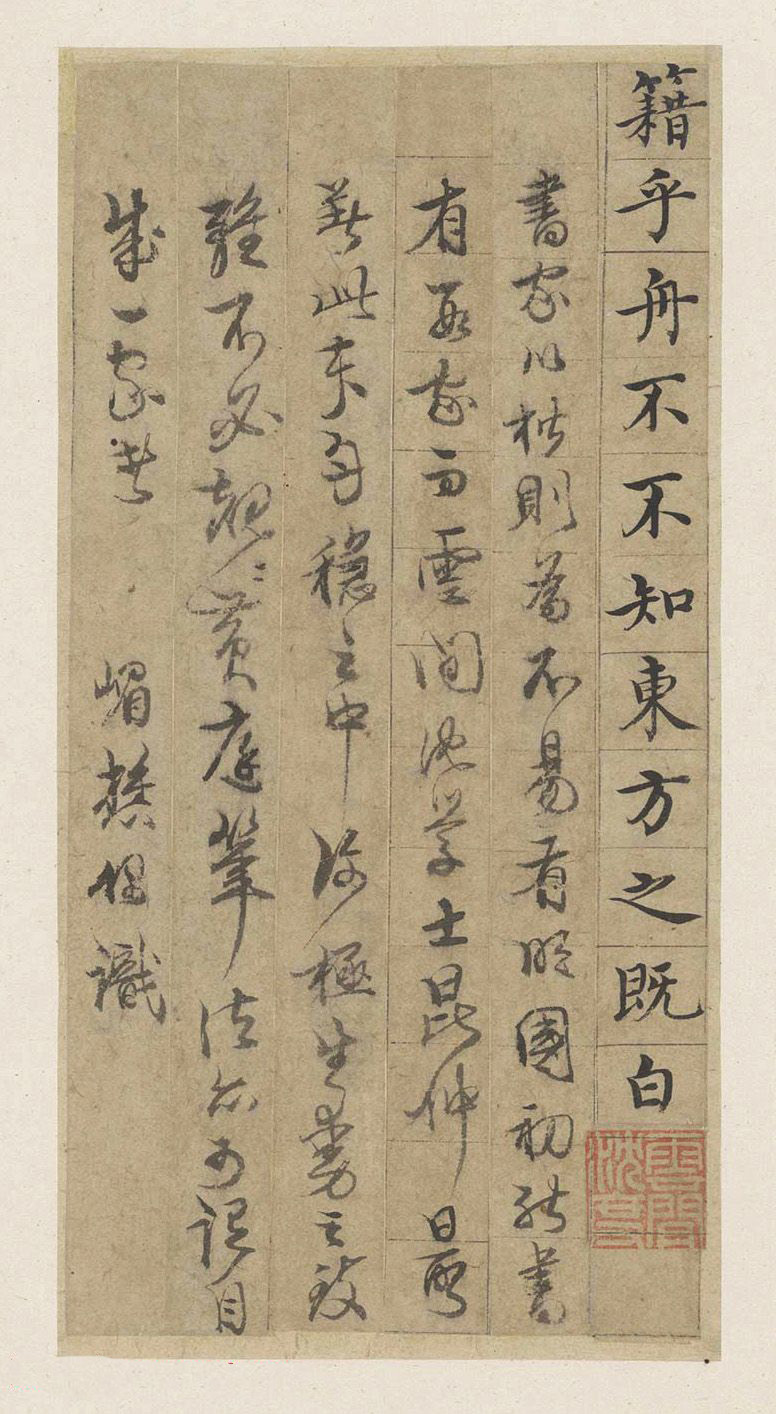 籍乎舟不不知東方之既白
雲間沈度
書家以楷則為不易看明國初能書
有家而雲間沈學士昆仲最
善此穩之中極生動之致
雖不必規々黃庭筆法亦可謂自
成一家者 嵋樵識